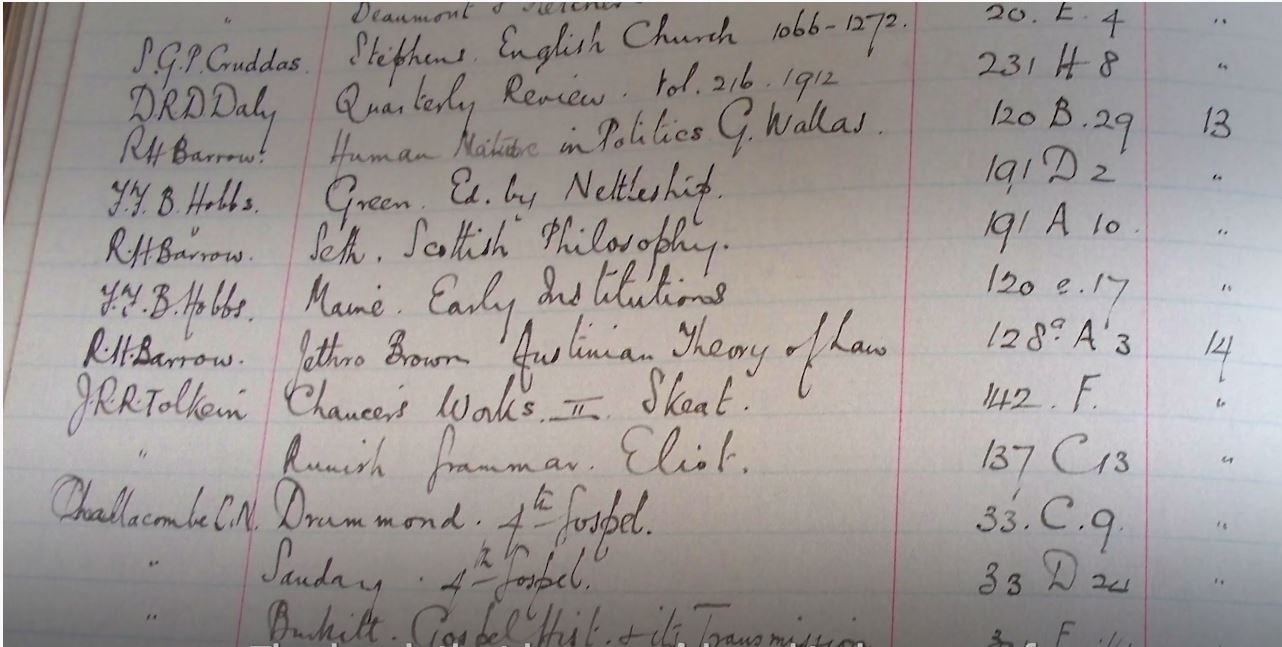 " Beaumont & Fletcher 20. E. 4 "
S.G.P. Cruddas. Stephens. English Church 1066-1272. 231 H 8 "
D R D Daly Quarterly Review. Vol. 216. 1912
R H Barrow. Human Nature in Politics G. Wallas. 120 B. 29 13
F.F. B. Hobbs. Green. Ed. by Nettleship. 191 D 2 "
R. H Barrow. Seth. Scottish Philosophy. 191 A 10. "
F.F. B. Hobbs. Maine. Early Institutions 120 e. 17 "
R. H. Barrow. Jethro Brown Austinian Theory of Law 128a. A 3 14
J.R.R. Tolkein Chaucer's Works. II. Skeat. 142. F. "
" Runish Grammar. Eliot. 137 C 13 "
Challacombe C.N. Drummond. 4th Gospel. 33. C. 9. "
" Sanday. 4th Gospel. 33 D 24 "
" Burkitt. Gospel Hist. & its Transmission